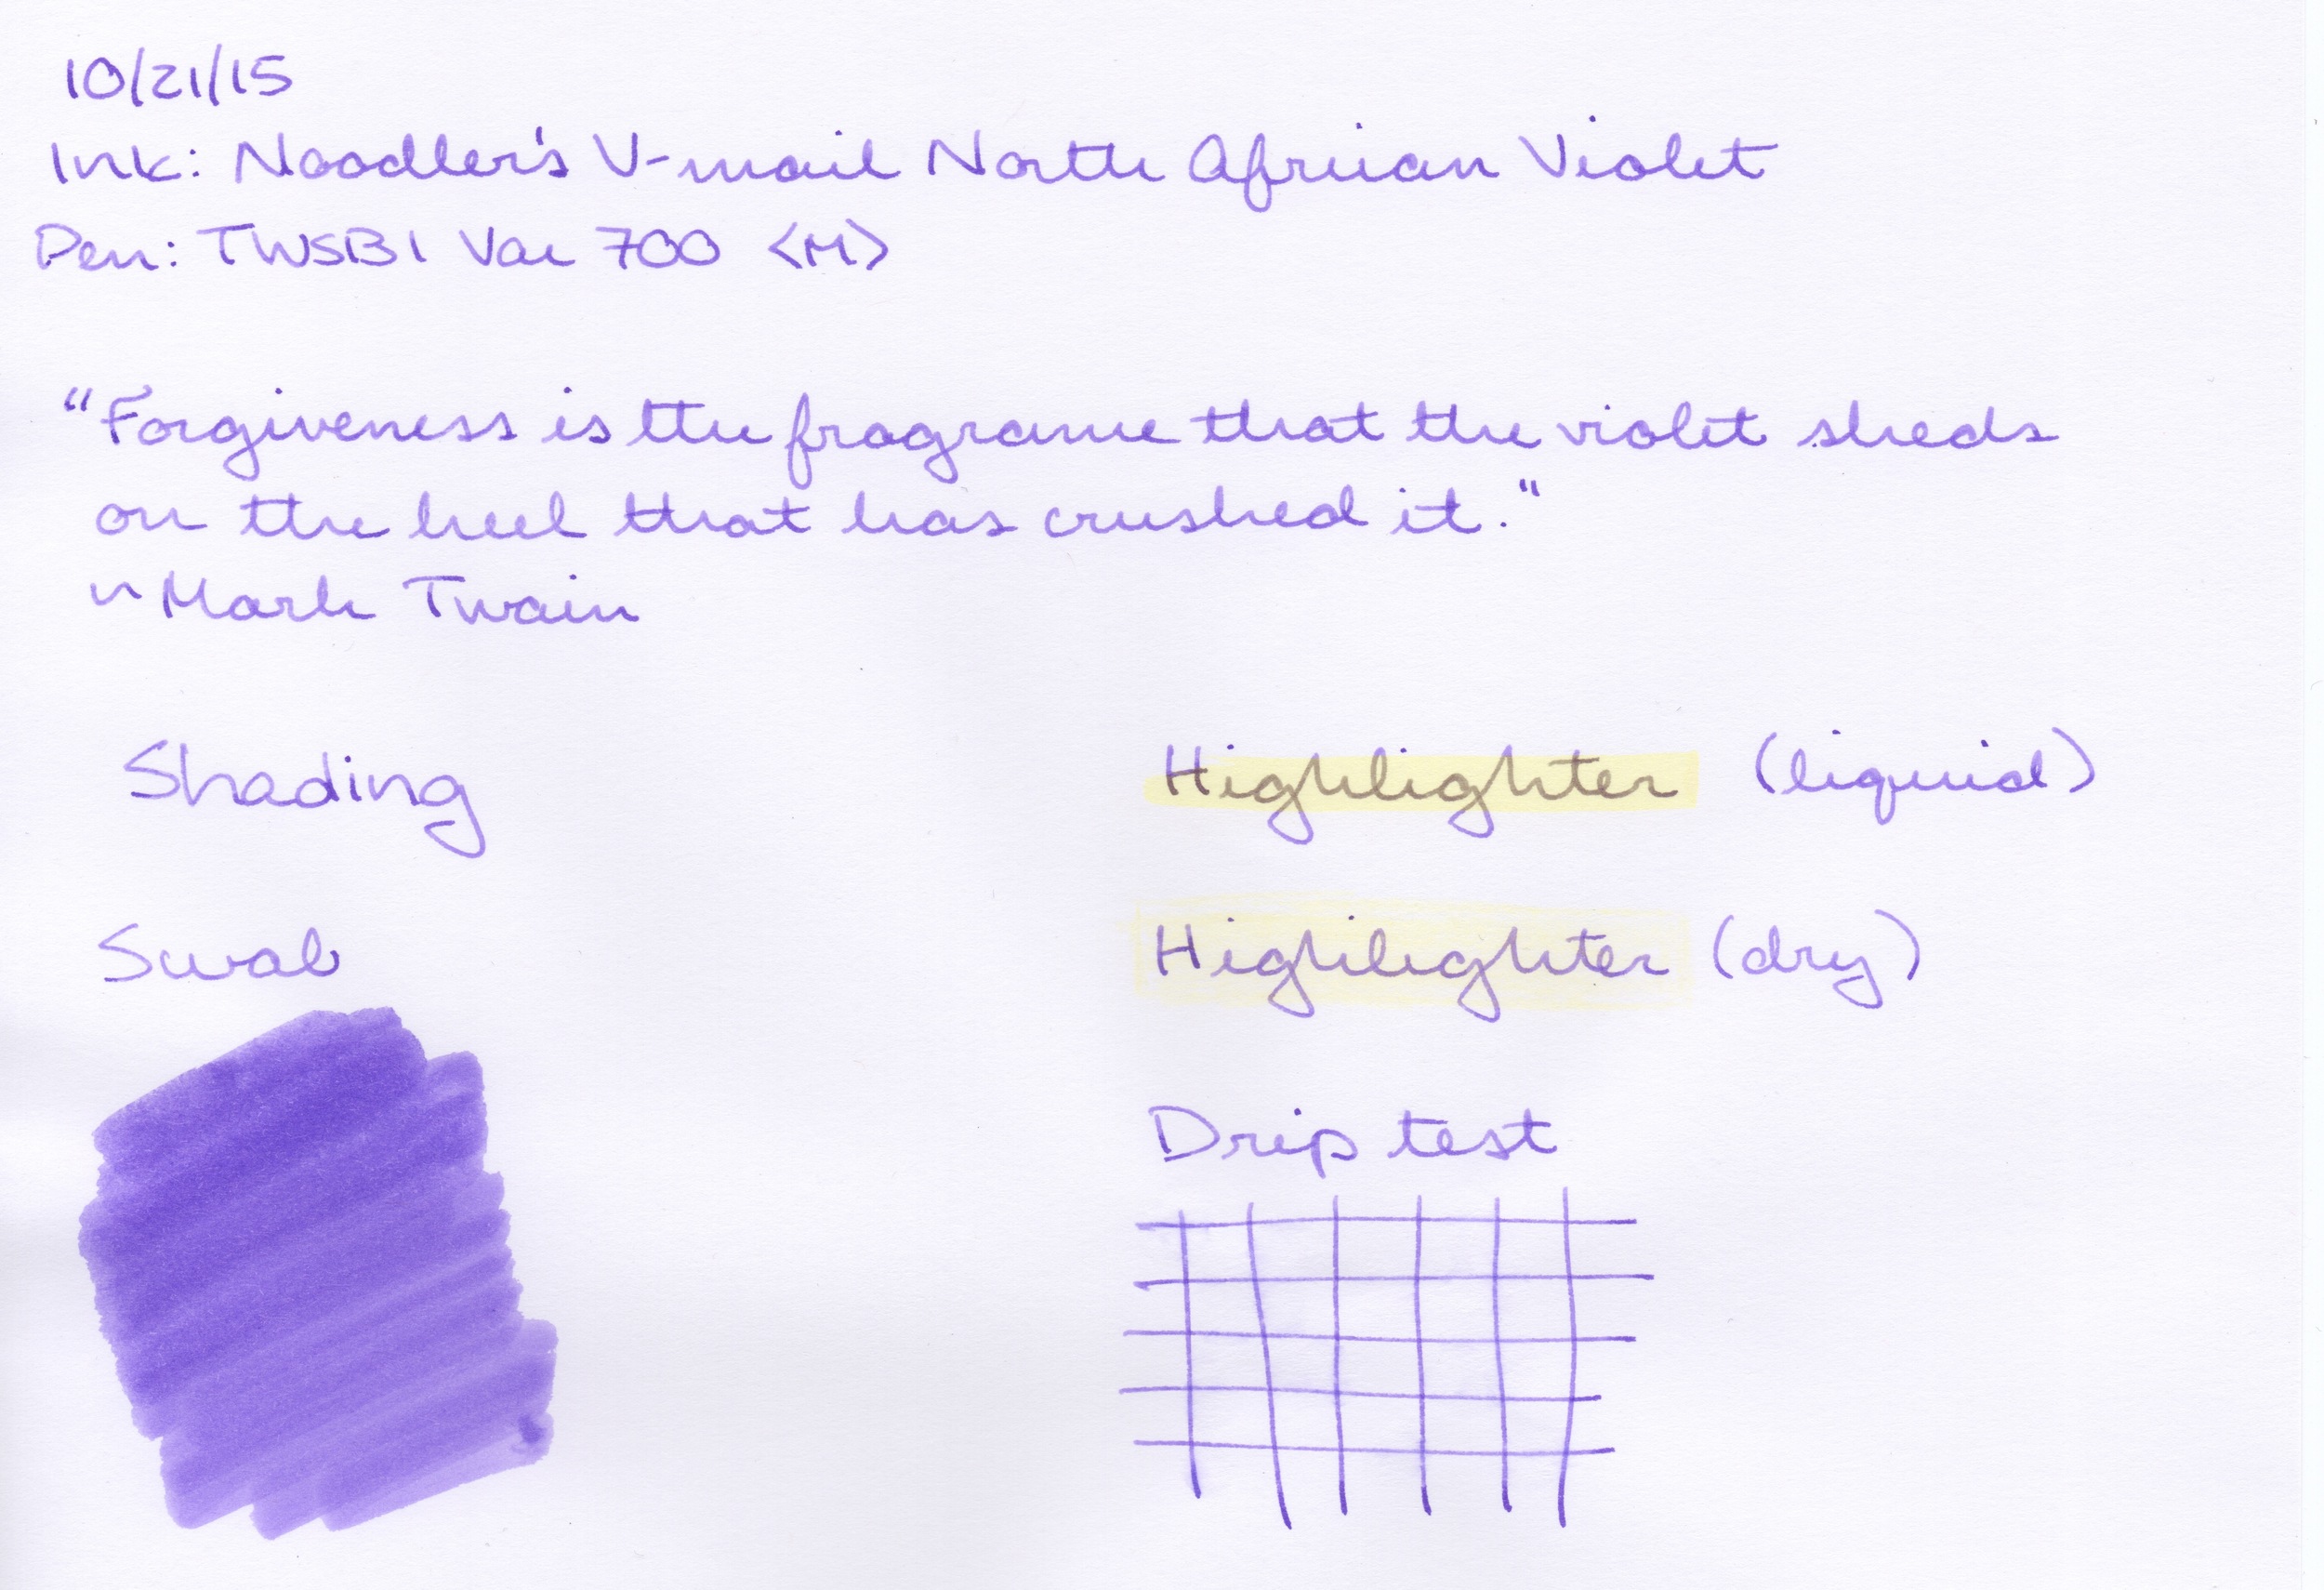 10/21/15
Ink: Noodler's V-mail North African Violet
Pen: TWSBI Vac 700 <M>
"Forgiveness is the fragrance that the violet sheds
on the heel that has crushed it."
~ Mark Twain
Shading
Highlighter (liquid)
Swab
Highlighter (dry)
Drip test